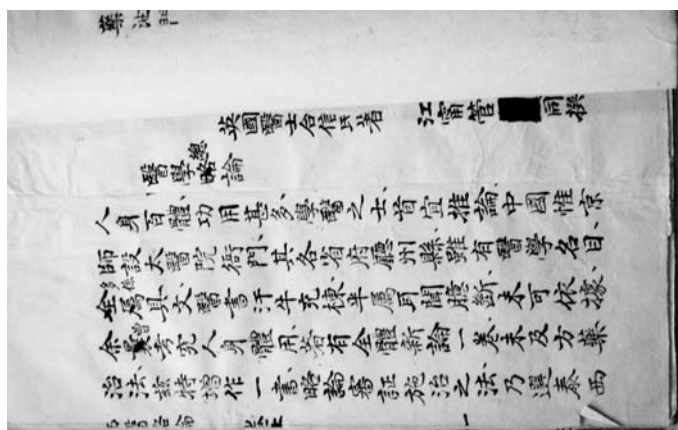 英國醫士合信氏著 江甯管 同撰
醫學總略論
人身百體、功用甚多、學醫之士、首宜推論、中國惟京
師設太醫院衙門、其各省府廳州縣、雖有醫學名目、
多係屬具文、醫書汗牛充棟、半屬耳聞臆斷、未可依據、
余曾考究人身體用、著有全體新論一卷、未及方藥
治法、茲特撮作一書、略論審証施治之法、乃選泰西
一